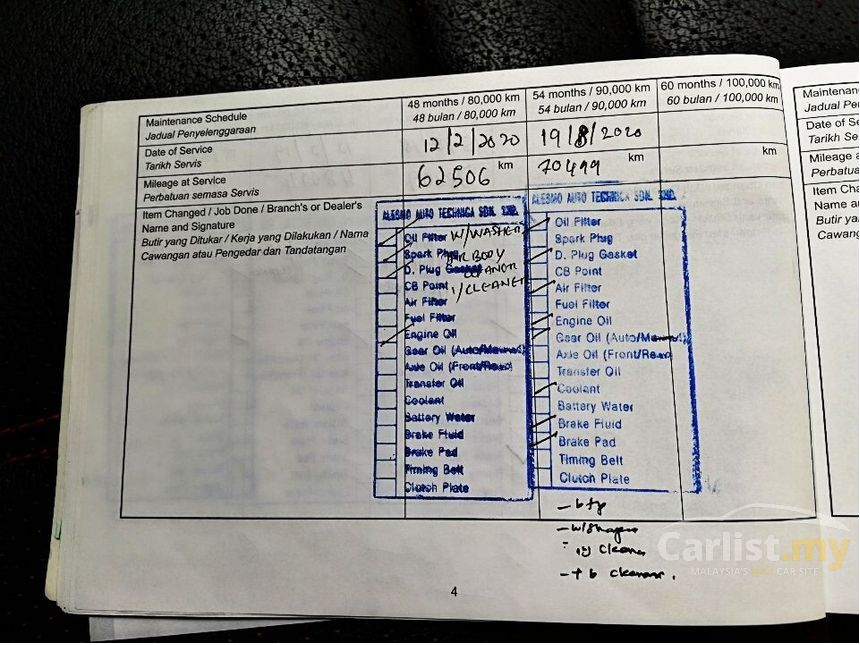 Maintenance Schedule
Jadual Penyelenggaraan
48 months / 80,000 km
48 bulan / 80,000 km
54 months / 90,000 km
54 bulan / 90,000 km
60 months / 100,000 km
60 bulan / 100,000 km
Date of Service
Tarikh Servis
12/2/2020
19/8/2020
Mileage at Service
Perbatuan semasa Servis
62506 km
70499 km
km
Item Changed / Job Done / Branch's or Dealer's
Name and Signature
Butir yang Ditukar / Kerja yang Dilakukan / Nama
Cawangan atau Pengedar dan Tandatangan
AUTO TECHNICA SDN. BHD.
Oil Filter
Spark Plug
D. Plug Gasket
CB Point
Air Filter
Fuel Filter
Engine Oil
Gear Oil (Auto/Manual)
Axle Oil (Front/Rear)
Transfer Oil
Coolant
Battery Water
Brake Fluid
Brake Pad
Timing Belt
Clutch Plate
W/WASHER
BODY
CLEANER
I/CLEANER
AUTO TECHNICA SDN. BHD.
Oil Filter
Spark Plug
D. Plug Gasket
CB Point
Air Filter
Fuel Filter
Engine Oil
Gear Oil (Auto/Manual)
Axle Oil (Front/Rear)
Transfer Oil
Coolant
Battery Water
Brake Fluid
Brake Pad
Timing Belt
Clutch Plate
cleaner
- t b cleaner.
4
Maintenan
Jadual Pe
Date of Se
Tarikh Se
Mileage a
Perbatua
Item Cha
Name a
Butir ya
Cawang
Carlist.my
MALAYSIA'S NO.1 CAR SITE